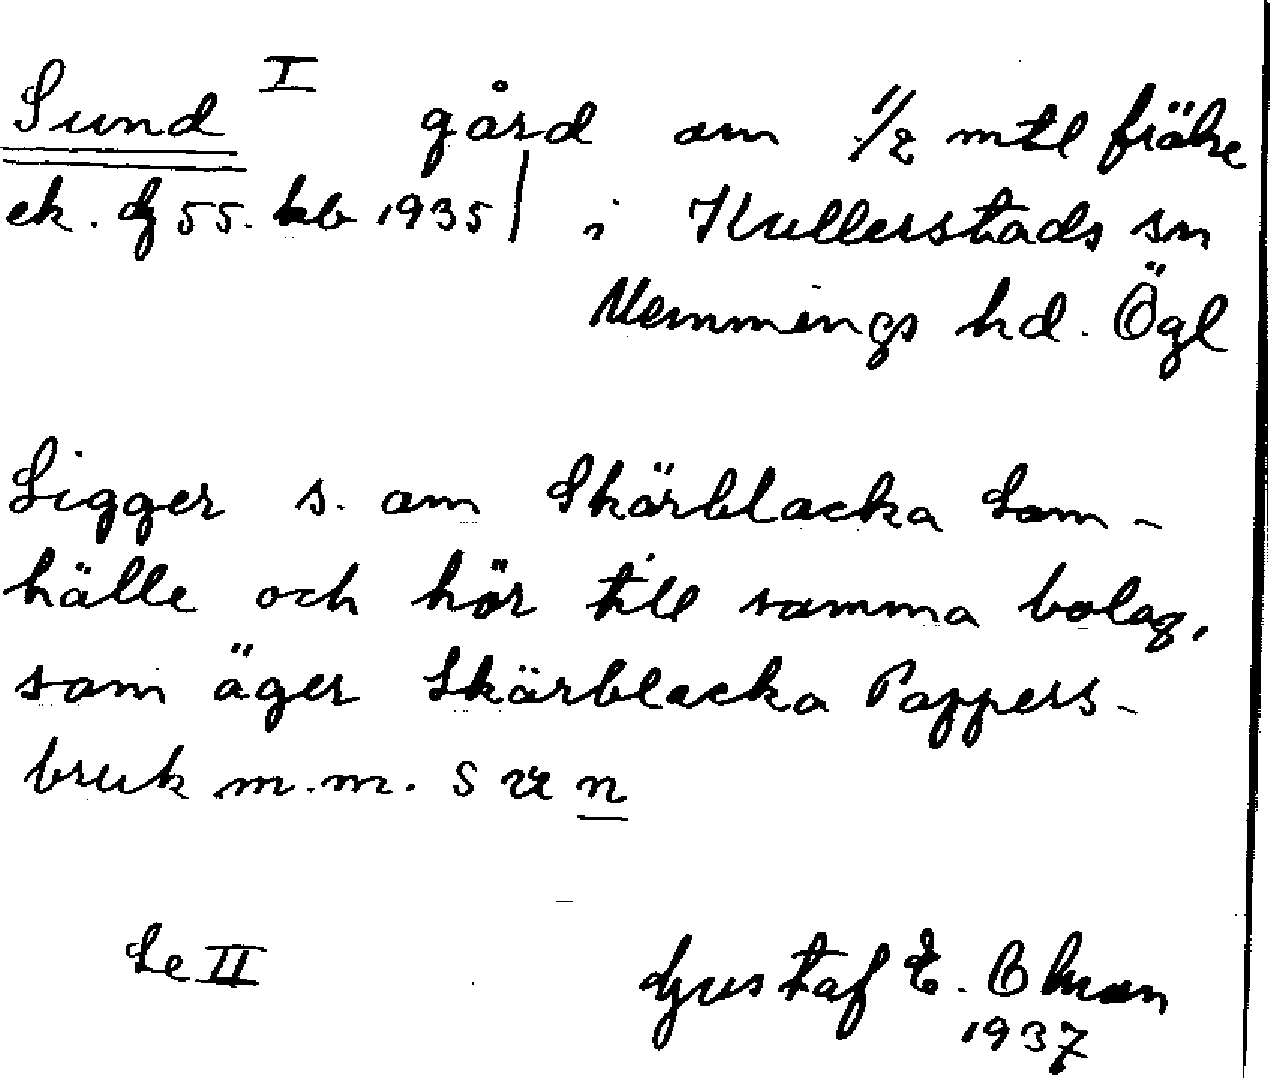 Sund I gård om 1/2 mtl frälse
ek. G 55. kb 1935 | i Kullerstads sn
Memmings hd. Ögl
Ligger s. om Skärblacka Sam-
hälle och hör till samma bolag,
som äger Skärblacka Pappers-
bruk m.m.
Se II Gustaf E. Ohman
1937